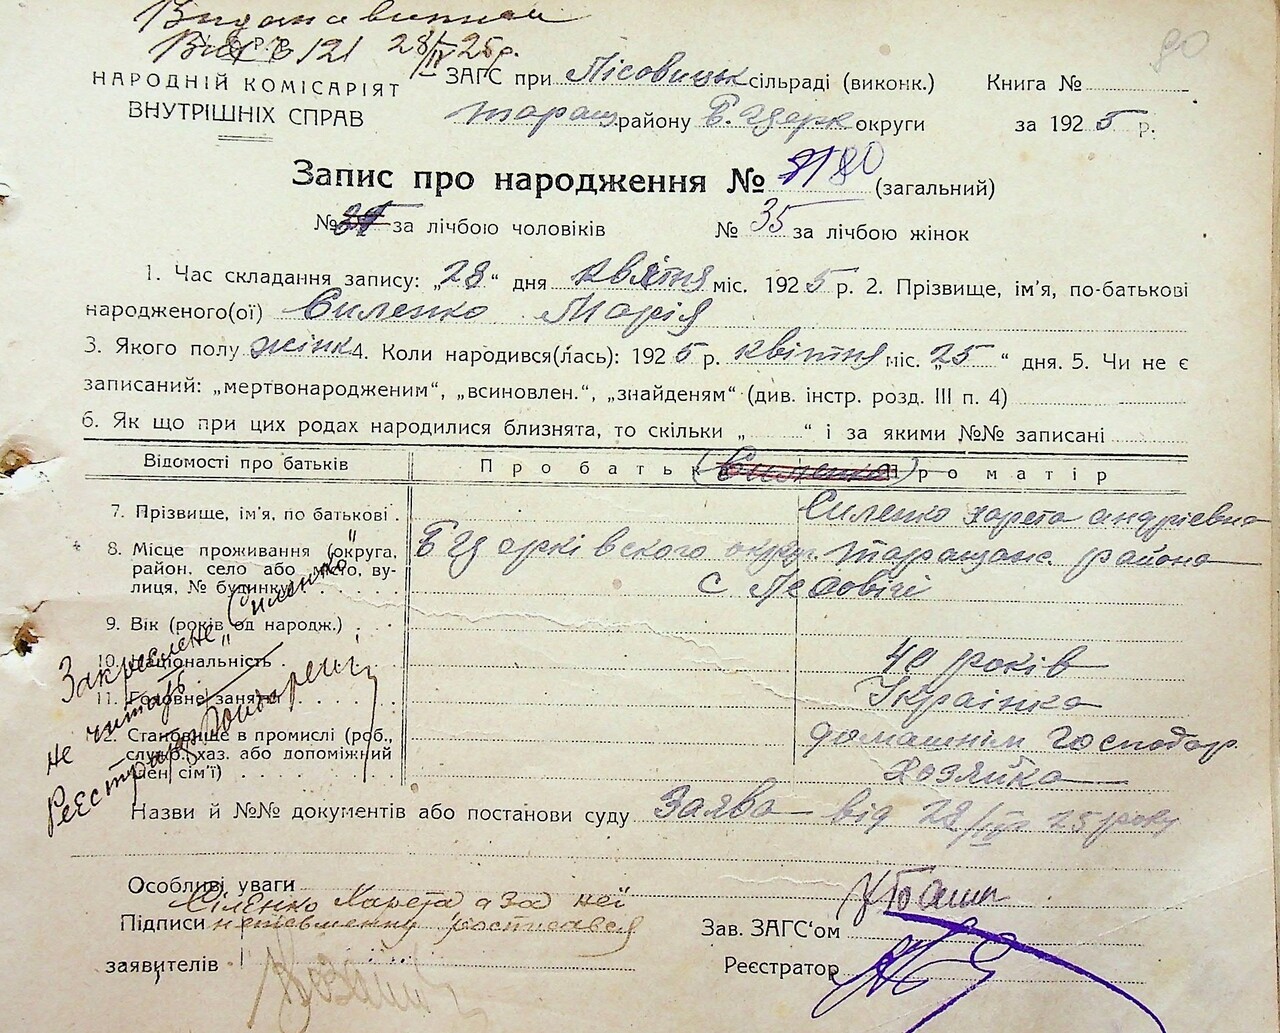 Видана виписка
Вих № 121 28/IV 25 р.
90
НАРОДНІЙ КОМІСАРІЯТ
ВНУТРІШНІХ СПРАВ
ЗАГС при Лісовицьк сільраді (виконк.) Книга №
Таращ району Б. Церк округи за 1925 р.
Запис про народження № 80 (загальний)
№ за лічбою чоловіків № 35 за лічбою жінок
1. Час складання запису: „28“ дня квітня міс. 1925 р. 2. Прізвище, ім'я, по-батькові
народженого(ої) Силенко Марія
3. Якого полу жінк 4. Коли народився(лась): 1925 р. квітня міс. „25“ дня. 5. Чи не є
записаний: „мертвонародженим“, „всиновлен.“, „знайденям“ (див. інстр. розд. III п. 4)
6. Як що при цих родах народилися близнята, то скільки „ “ і за якими №№ записані
Відомості про батьків Про батька Силенко Про матір
7. Прізвище, ім'я, по батькові Силенко Харета Андріевна
8. Місце проживання (округа, район, село або місто, вулиця, № будинку) Б Церківского округ. Таращанс. района
с Лісовичі
9. Вік (років од народж.) 40 років
10. Національність Українка
11. Головне заняття домашнім господар.
12. Становище в промислі (роб., служ. хаз. або допоміжний член сім'ї) Хозяйка
Закреслене „Силенко“
не читать
Реєстратор Бондаренко
Назви й №№ документів або постанови суду Заява від 28/IV 25 року
Особливі уваги
Підписи Сіленко Харета а за неї
неписьменну розписався
заявителів
Зав. ЗАГС'ом
Реєстратор